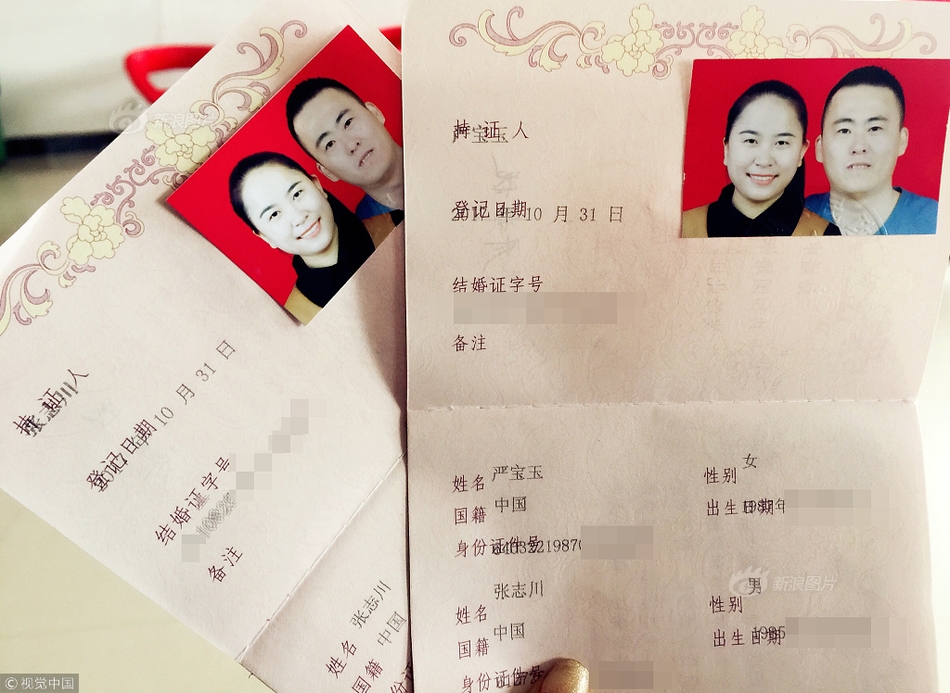 持证人
严宝玉
登记日期
10 月 31 日
结婚证字号
备注
姓名 严宝玉
性别 女
国籍 中国
出生日期
身份证件号
姓名 张志川
性别 男
国籍 中国
出生日期
身份证件号
持证人
张志川
登记日期
10 月 31 日
结婚证字号
备注
姓名 张志川
国籍 中国
身份证
新浪图片
新浪图片
©视觉中国